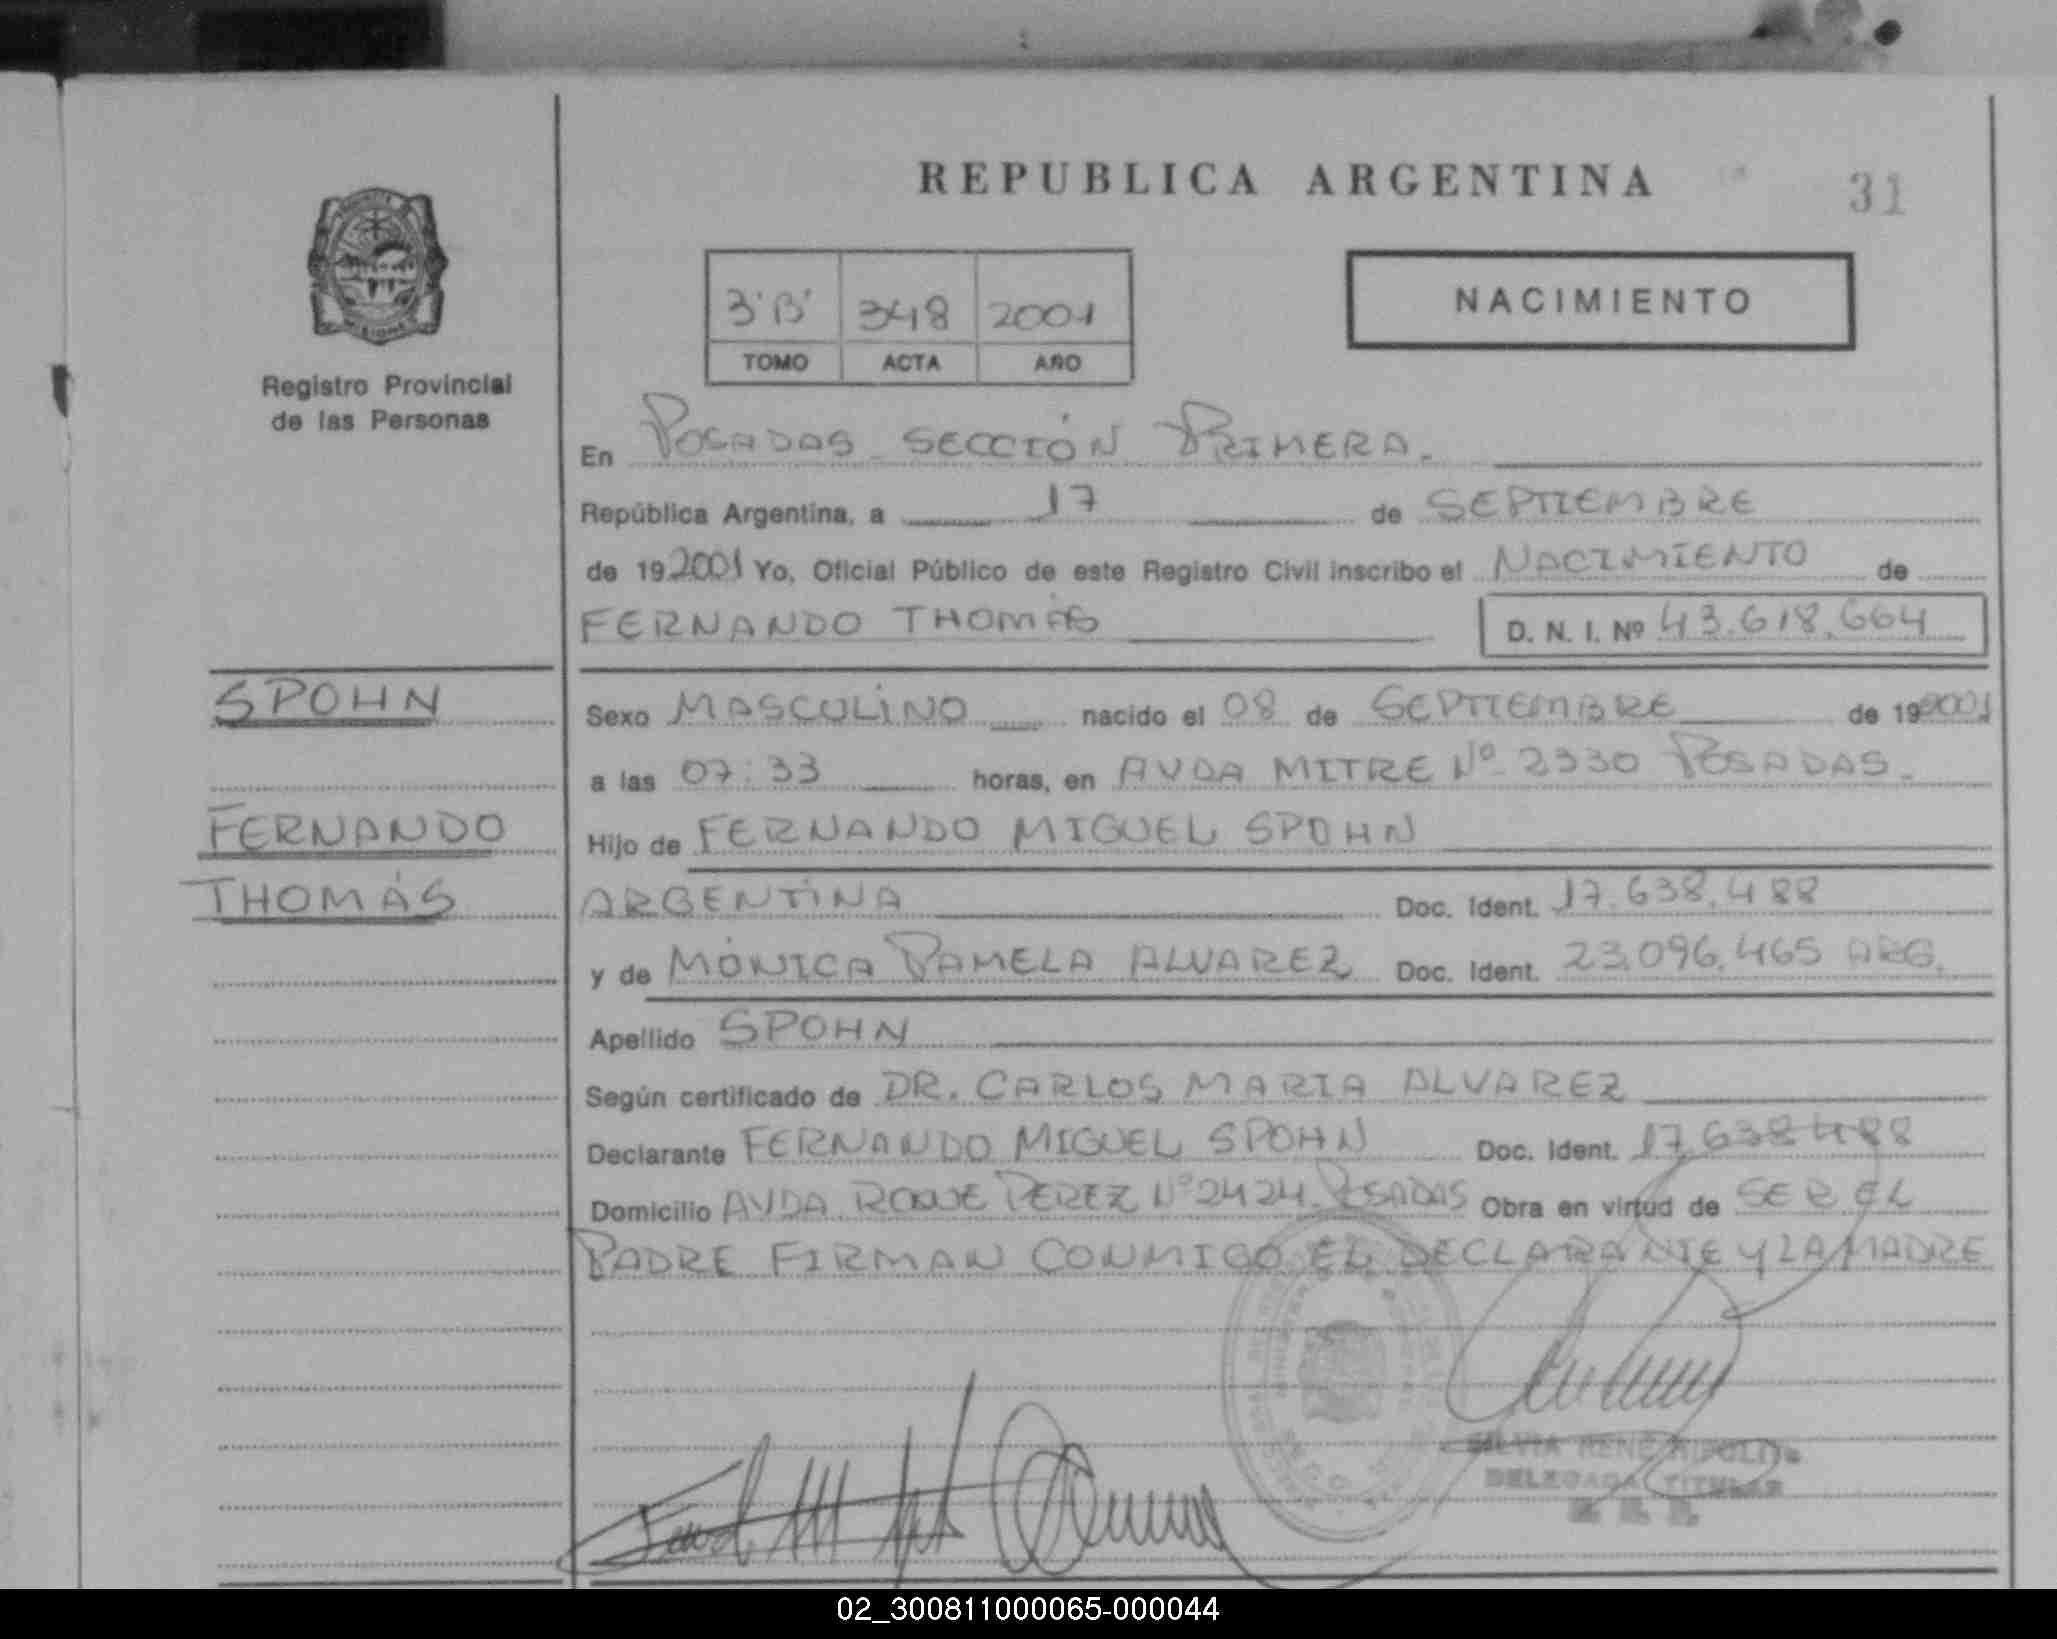 REPUBLICA ARGENTINA
31
3'B' 348 2001
TOMO ACTA AÑO
NACIMIENTO
Registro Provincial
de las Personas
En POSADAS SECCIÓN PRIMERA.
República Argentina, a 17 de SEPTIEMBRE
de 19 2001 Yo, Oficial Público de este Registro Civil inscribo el NACIMIENTO de
FERNANDO THOMÁS D. N. I. Nº 43.618.664
SPOHN
Sexo MASCULINO nacido el 08 de SEPTIEMBRE de 19 2001
a las 07:33 horas, en AVDA MITRE Nº 2330 POSADAS.
FERNANDO
Hijo de FERNANDO MIGUEL SPOHN
THOMÁS
ARGENTINA Doc. Ident. 17.638.488
y de MÓNICA PAMELA ALVAREZ Doc. Ident. 23.096.465 ARG.
Apellido SPOHN
Según certificado de DR. CARLOS MARIA ALVAREZ
Declarante FERNANDO MIGUEL SPOHN Doc. Ident. 17.638.488
Domicilio AVDA ROQUE PEREZ Nº 2424 POSADAS Obra en virtud de SER EL
PADRE FIRMAN CONMIGO EL DECLARANTE Y LA MADRE
SILVIA RENE
DELEGADA TITULAR
02_300811000065-000044